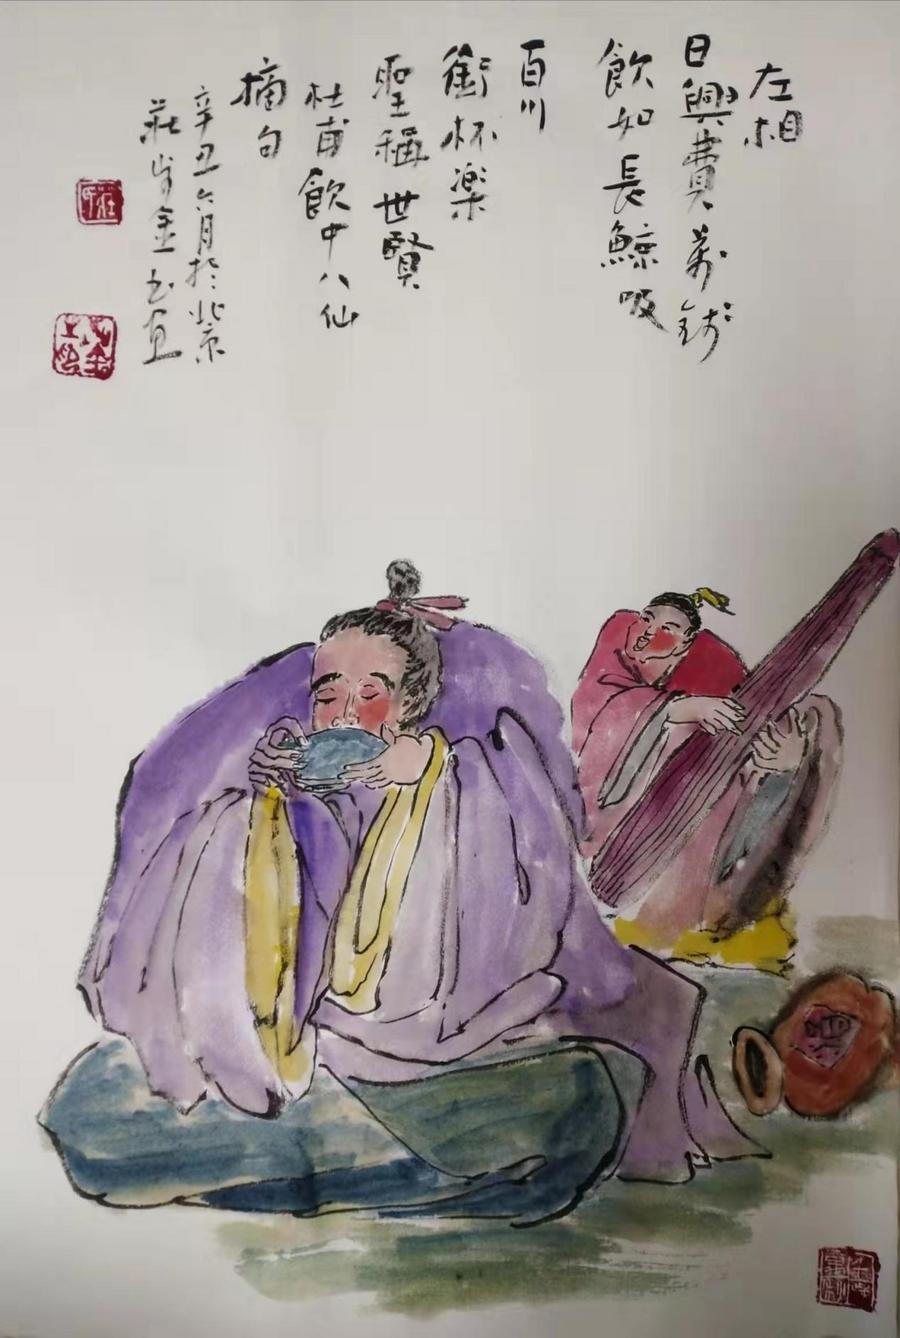 左相
日興費萬錢
飲如長鯨吸
百川
銜杯楽
聖稱世賢
杜甫飲中八仙
摘句
辛丑六月於北京
莊金书画